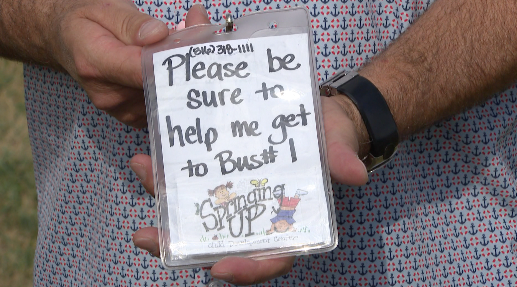 (816) 318-1111
Please be
sure to
help me get
to Bus# 1
Springing
UP